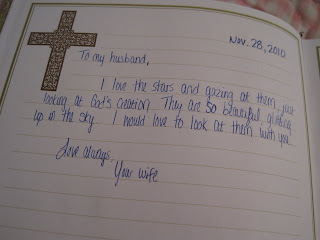 Nov. 28, 2010
To my husband,
I love the stars and gazing at them, just
looking at God's creation. They are so beautiful, glittering
up in the sky. I would love to look at them with you.
Love always,
Your wife